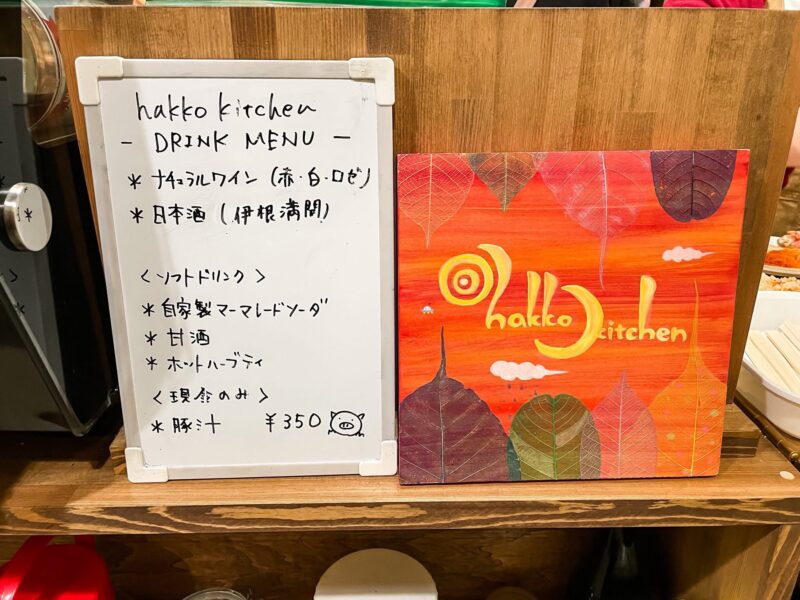 hakko kitchen
- DRINK MENU -
* ナチュラルワイン (赤・白・ロゼ)
* 日本酒 (伊根満開)
<ソフトドリンク>
* 自家製マーマレードソーダ
* 甘酒
* ホットハーブティ
<現金のみ>
* 豚汁 ¥350
hakko kitchen